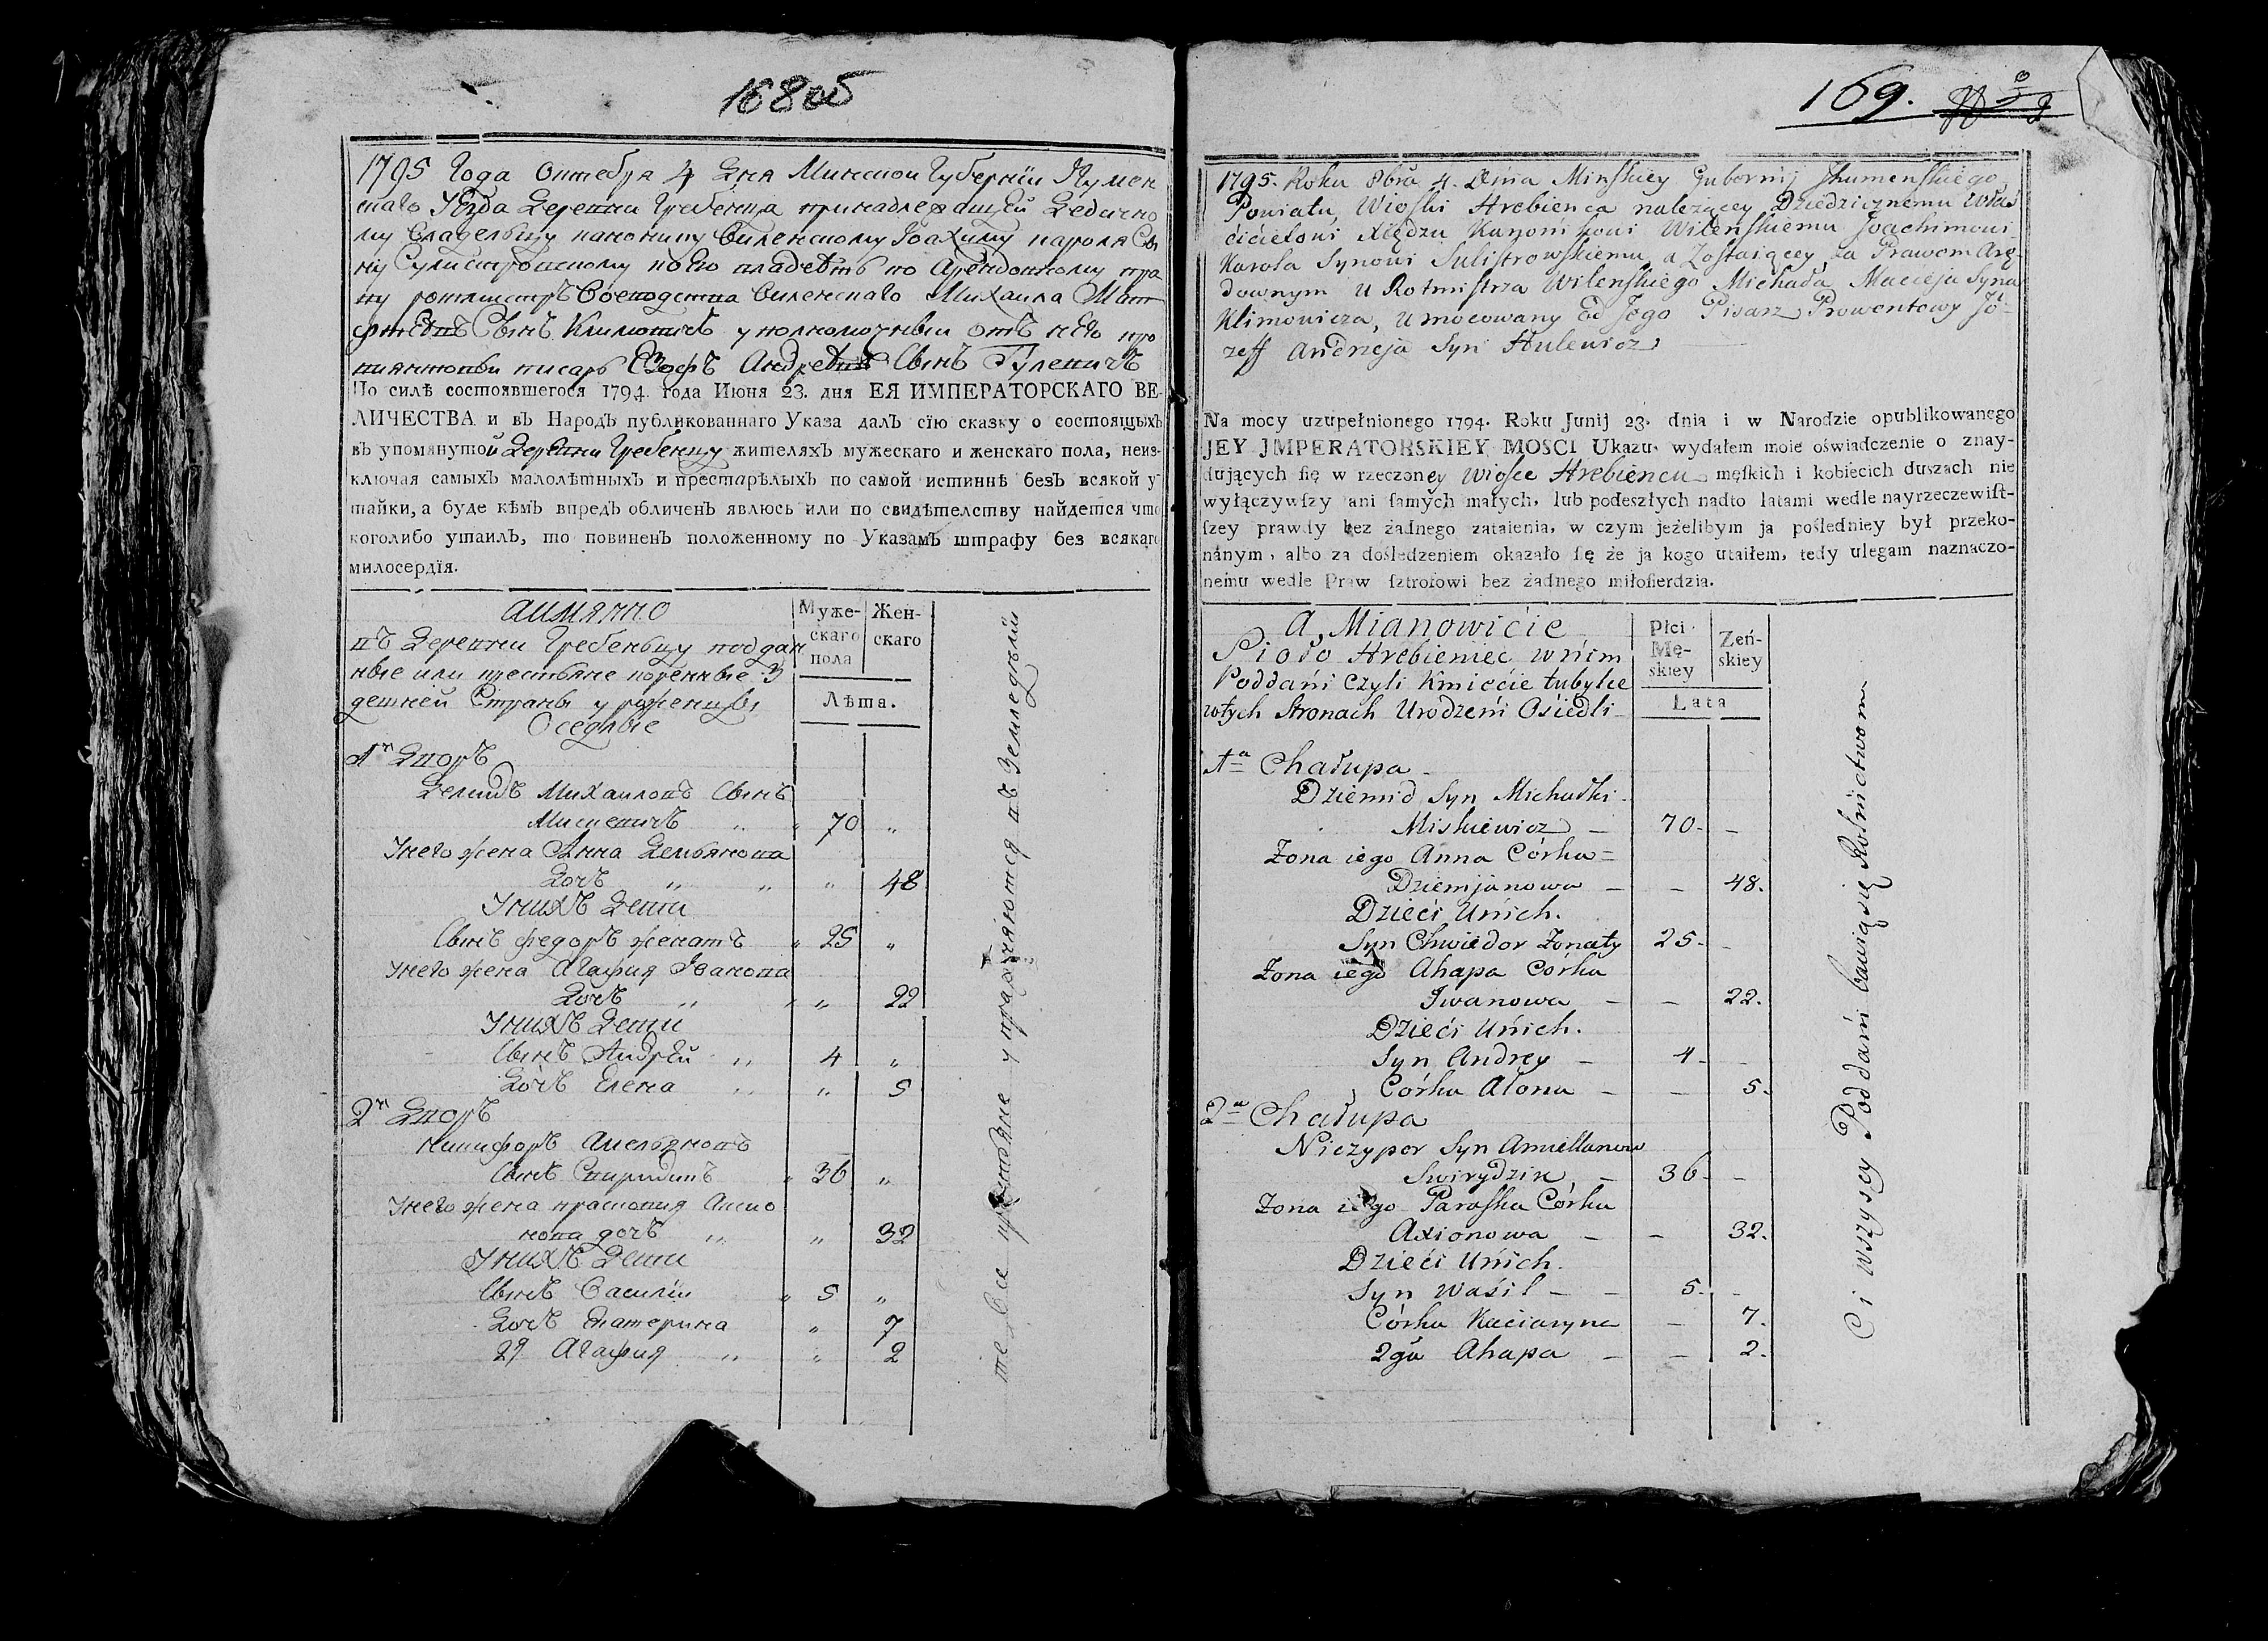 168об
1795 Года Октебря 4 Дня Минской Губернїи Игумен
скаго Уезда Деревни Гребенца принадлежащей Дедично
му Владельцу канонику Виленскому Іоахиму Кароля Сы
ну Сулистровскому по Его владеть по Арендовному пра
ву ротмистръ Воеводства Виленскаго Михаила Мат
феевъ Сынъ Климовичъ уполномочивши отъ него про
писарь Езофъ Андреевъ Сынъ Гулевичъ
По силѣ состоявшегося 1794. года Июня 23. дня ЕЯ ИМПЕРАТОРСКАГО ВЕ-
ЛИЧЕСТВА и вЪ НародЪ публикованнаго Указа далЪ сїю сказку о состоящыхЪ
вЪ упомянутой Деревни Гребенцу жителяхЪ мужескаго и женскаго пола, неиз-
ключая самыхЪ малолѣтныхЪ и престарѣлыхЪ по самой истиннѣ безЪ всякой у
тайки, а буде кѣмЪ впредЪ обличенЪ явлюсь или по свидѣтелству найдется что
коголибо утаилЪ, то повиненЪ положенному по УказамЪ штрафу без всякаго
милосердїя.
аимянно
въ Деревни Гребеньцу поддан
ные или крестьяне коренные З
дешней Страны уроженцы
Оседлые
Муже-
скаго
пола
Жен-
скаго
Лѣта.
1й Дворъ
Демидъ Михаиловъ Сынъ
Мискевичъ " " 70 "
Унего жена Анна Демьянова
Дочь " " " 48
Унихъ Дети
Сынъ Федоръ женатъ " 25 "
Унего жена Агафия Іванова
Дочь " " " 22
Унихъ Дети
Сынъ Андрей " 4 "
Дочь Елена " " 5
2й Дворъ
Никифоръ Амельяновъ
Сынъ Свиридинъ " 36 "
Унего жена праскопия Аксио
нова дочь " " 32
Унихъ Дети
Сынъ Василïи " 5 "
Дочь Екатерина " 7
2я Агафия " " 2
те все крестьяне упражняются въ Земледелïи
169.
1795. Roku 8bra 4. Dnia Minſkiey Gubernij Jhumenſkiego
Powiatu, Wioſki Hrebienca należącey Dziedzicznemu Właś
cicielowi Xiędzu Kanonikowi Wileńſkiemu Joachimowi
Karola Synowi Suliſtrowſkiemu, a Zoſtaiącey za Prawem Arę
downym u Rotmiſtrza Wilenſkiego Michała Macieja Syna
Klimowicza, Umocowany Od Jego Pisarz Prowentowy Jó-
zeff Andrzeja Syn Hulewicz
Na mocy uzupełnionego 1794. Roku Junij 23. dnia i w Narodzie opublikowanego
JEY JMPERATORSKIEY MOSCI Ukazu, wydałem moie oświadczenie o znay-
dujących ſię w rzeczoney Wioſce Hrebiencu męſkich i kobiecich duszach nie
wyłączywſzy ani ſamych małych, lub podeszłych nadto latami wedle nayrzeczewiſt-
ſzey prawdy bez żadnego zataienia, w czym jeżelibym ja poſledniey był przeko-
nánym, albo za doſledzeniem okazało ſię że ja kogo utaiłem, tedy ulegam naznaczo-
nemu wedle Praw ſztrofowi bez żadnego miłoſierdzia.
a, Mianowicie
Sioło Hrebieniec wnim
Poddani Czyli Kmiećie tubylce
wtych Stronach Urodzeni Osiedli
Płci
Mę-
skiey
Żeń-
skiey
Lata
1a Chałupa
Dziemid Syn Michałki
Miskiewicz – 70 – –
Żona iego Anna Córka
Dziemjanowa – – 48.
Dzieći Unich.
Syn Chwiedor Żonaty 25 – –
Żona iego Ahapa Córka
Iwanowa – – 22.
Dzieći Unich.
Syn Andrey – 4 – –
Córka Alona – – 5.
2a Chałupa
Niczypor Syn Amiellanow
Swirydzik – 36 – –
Żona iego Paraſka Córka
Axionowa – – 32.
Dzieći Unich.
Syn Waśil – – 5. –
Córka Kaciaryna – 7.
2ga Ahapa – – 2.
Ci wszyscy Poddani bawią się Rolnictwem